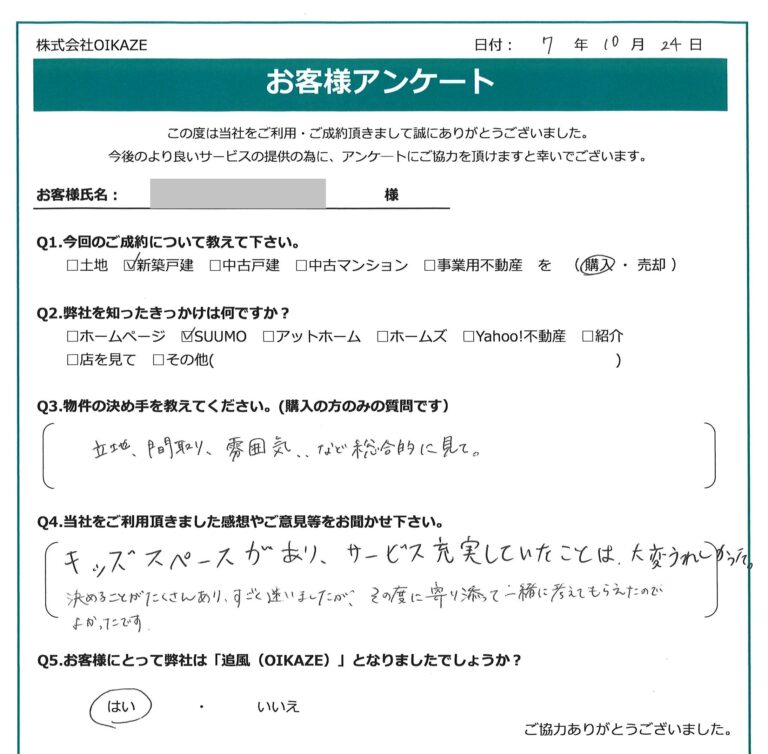 株式会社OIKAZE 日付： 7 年 10 月 24 日
お客様アンケート
この度は当社をご利用・ご成約頂きまして誠にありがとうございました。
今後のより良いサービスの提供の為に、アンケートにご協力を頂けますと幸いでございます。
お客様氏名： 様
Q1.今回のご成約について教えて下さい。
□土地 ☑新築戸建 □中古戸建 □中古マンション □事業用不動産 を （購入・売却）
Q2.弊社を知ったきっかけは何ですか？
□ホームページ ☑SUUMO □アットホーム □ホームズ □Yahoo!不動産 □紹介
□店を見て □その他( )
Q3.物件の決め手を教えてください。(購入の方のみの質問です）
立地、間取り、雰囲気、、など総合的に見て。
Q4.当社をご利用頂きました感想やご意見等をお聞かせ下さい。
キッズスペースがあり、サービス充実していたことは、大変うれしかった。
決めることがたくさんあり、すごく迷いましたが、その度に寄り添って一緒に考えてもらえたので
よかったです.
Q5.お客様にとって弊社は「追風（OIKAZE）」となりましたでしょうか？
はい ・ いいえ
ご協力ありがとうございました。